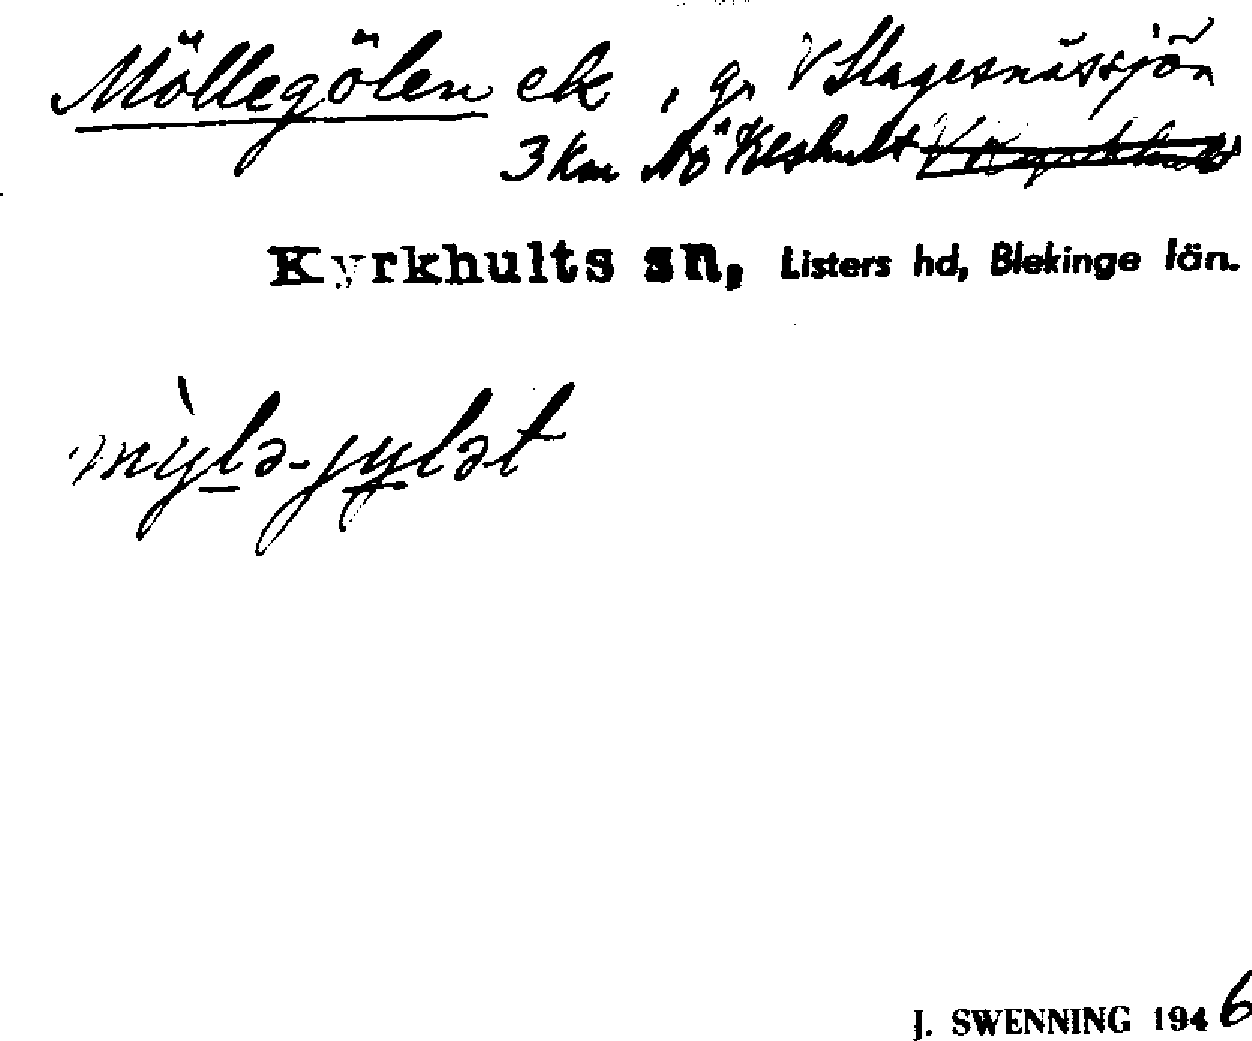 Möllegölen ek, g. V Slagesnässjön
3 km NÖ Ekeshult
Kyrkhults sn, Listers hd, Blekinge län.
mỳlə-jylət
J. SWENNING 1946